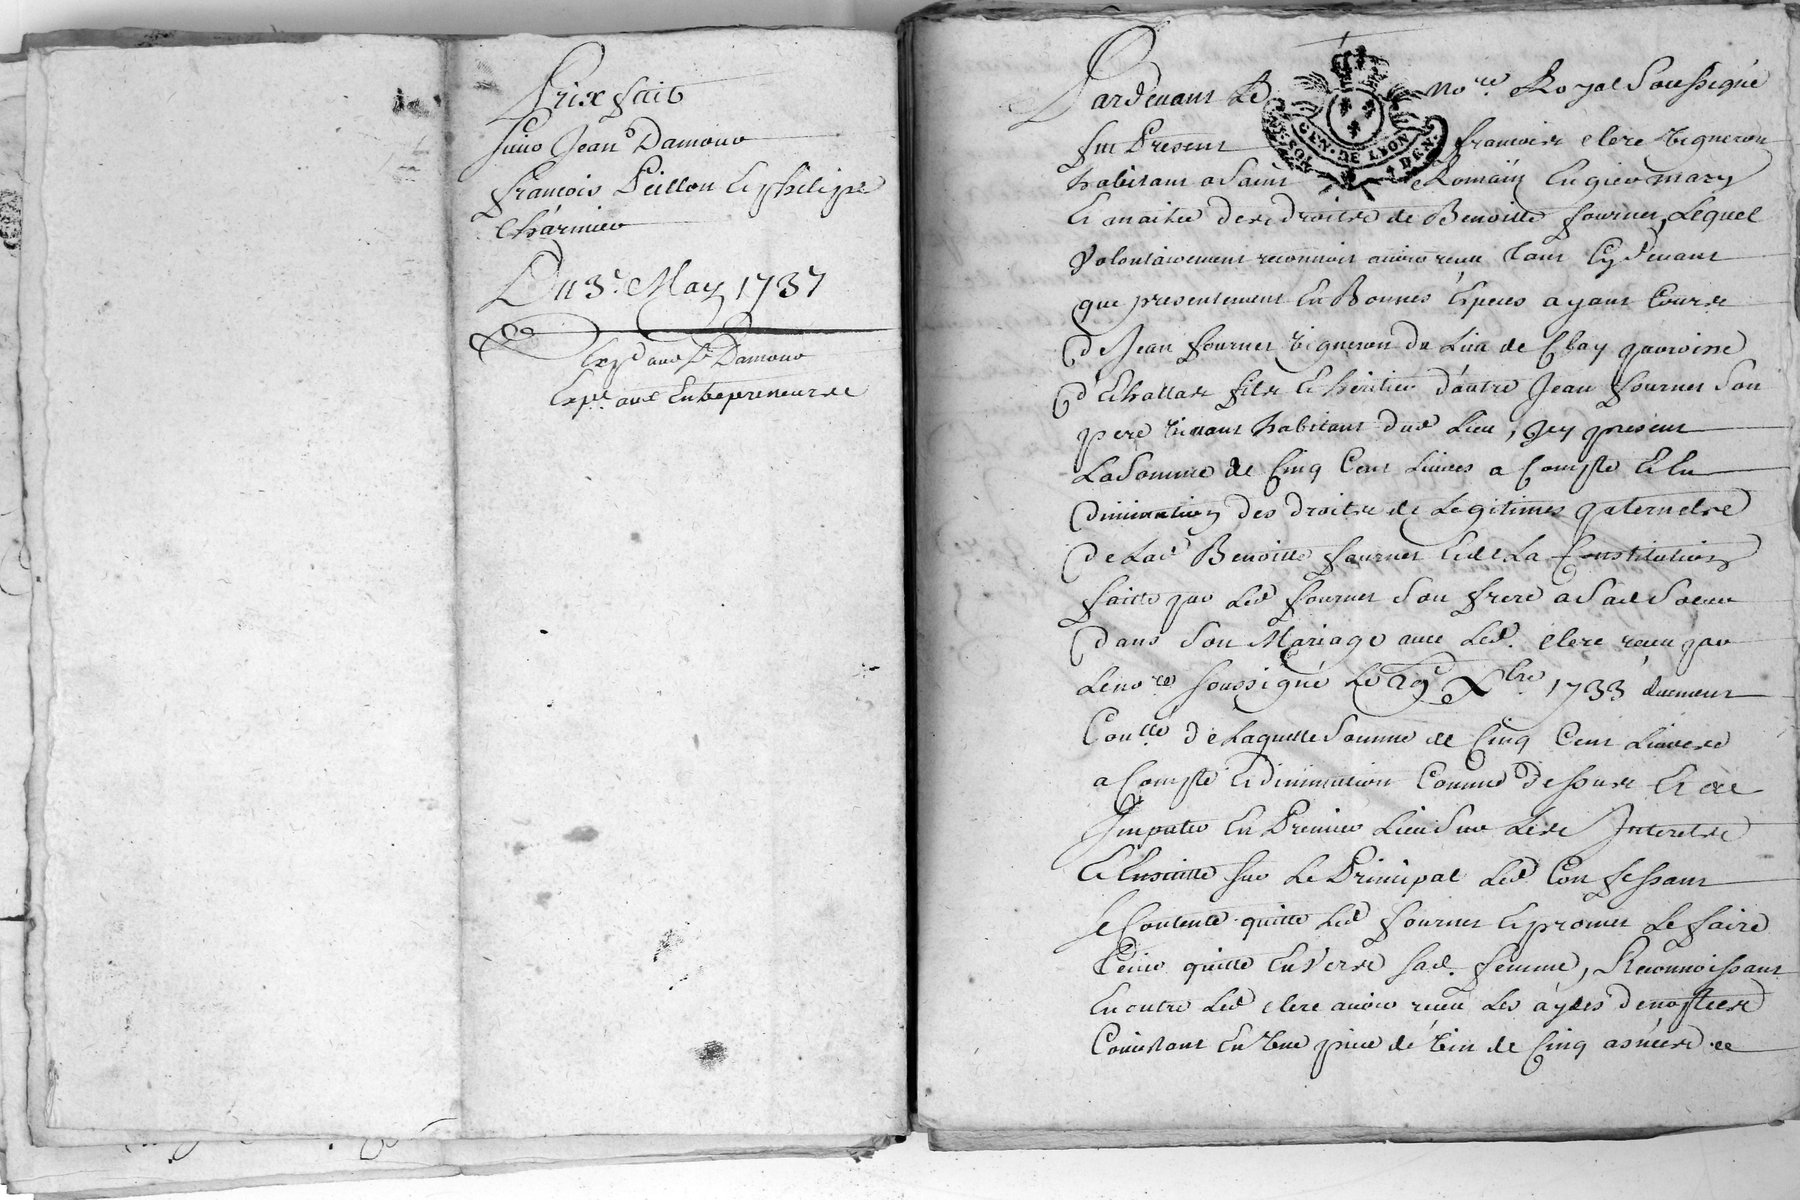 Prix fait
Jean Damono
francois Peillon Et philipe
Chármieu
Du 3e. May 1737
Exp. aud Sr Damono
Expé. aux Entrepreneurs
GEN. DE LYON
Pardevant Le no.re Royal Soussigné
fut Present francois Clere Vigneron
habitant a Saint Romain En giers mary
Et maitre des droits de Benoitte fournet, Lequel
Volontairement reconnoit avoir receu tant Cy devant
que presentement En Bonnes Especes ayant Cours
de Jean fournet Vigneron du Lieu de parroisse
d'Echallas fils Et héritier d'autre Jean fournet Son
pere Vivant habitant dud Lieu, Icy present
La Somme de Cinq Cent Livres a Compte Et En
diminution des droits de Legitimes paternels
de Lad Benoitte fournet Et de La Constitution
faitte par Led fournet Son frere a Sad Soeur
dans Son Mariage avec Led. Clere receu par
Le no.re Soussigné Le 29e Xbre. 1733 duement
Contllé de Laquelle Somme de Cinq Cent Livres
a Compte Et diminution Comme dessus Et de
Imputer En Premier Lieu Sur Les Interets
Et Ensuitte Sur Le Principal Led Confessant
Se Contente quitte Led fournet Et promet Le faire
Tenir quitte Envers Sad. femme, Reconnoissant
En outre Led Clere avoir receu Les
Consistant En Une piece de Vin de Cinq asnées de